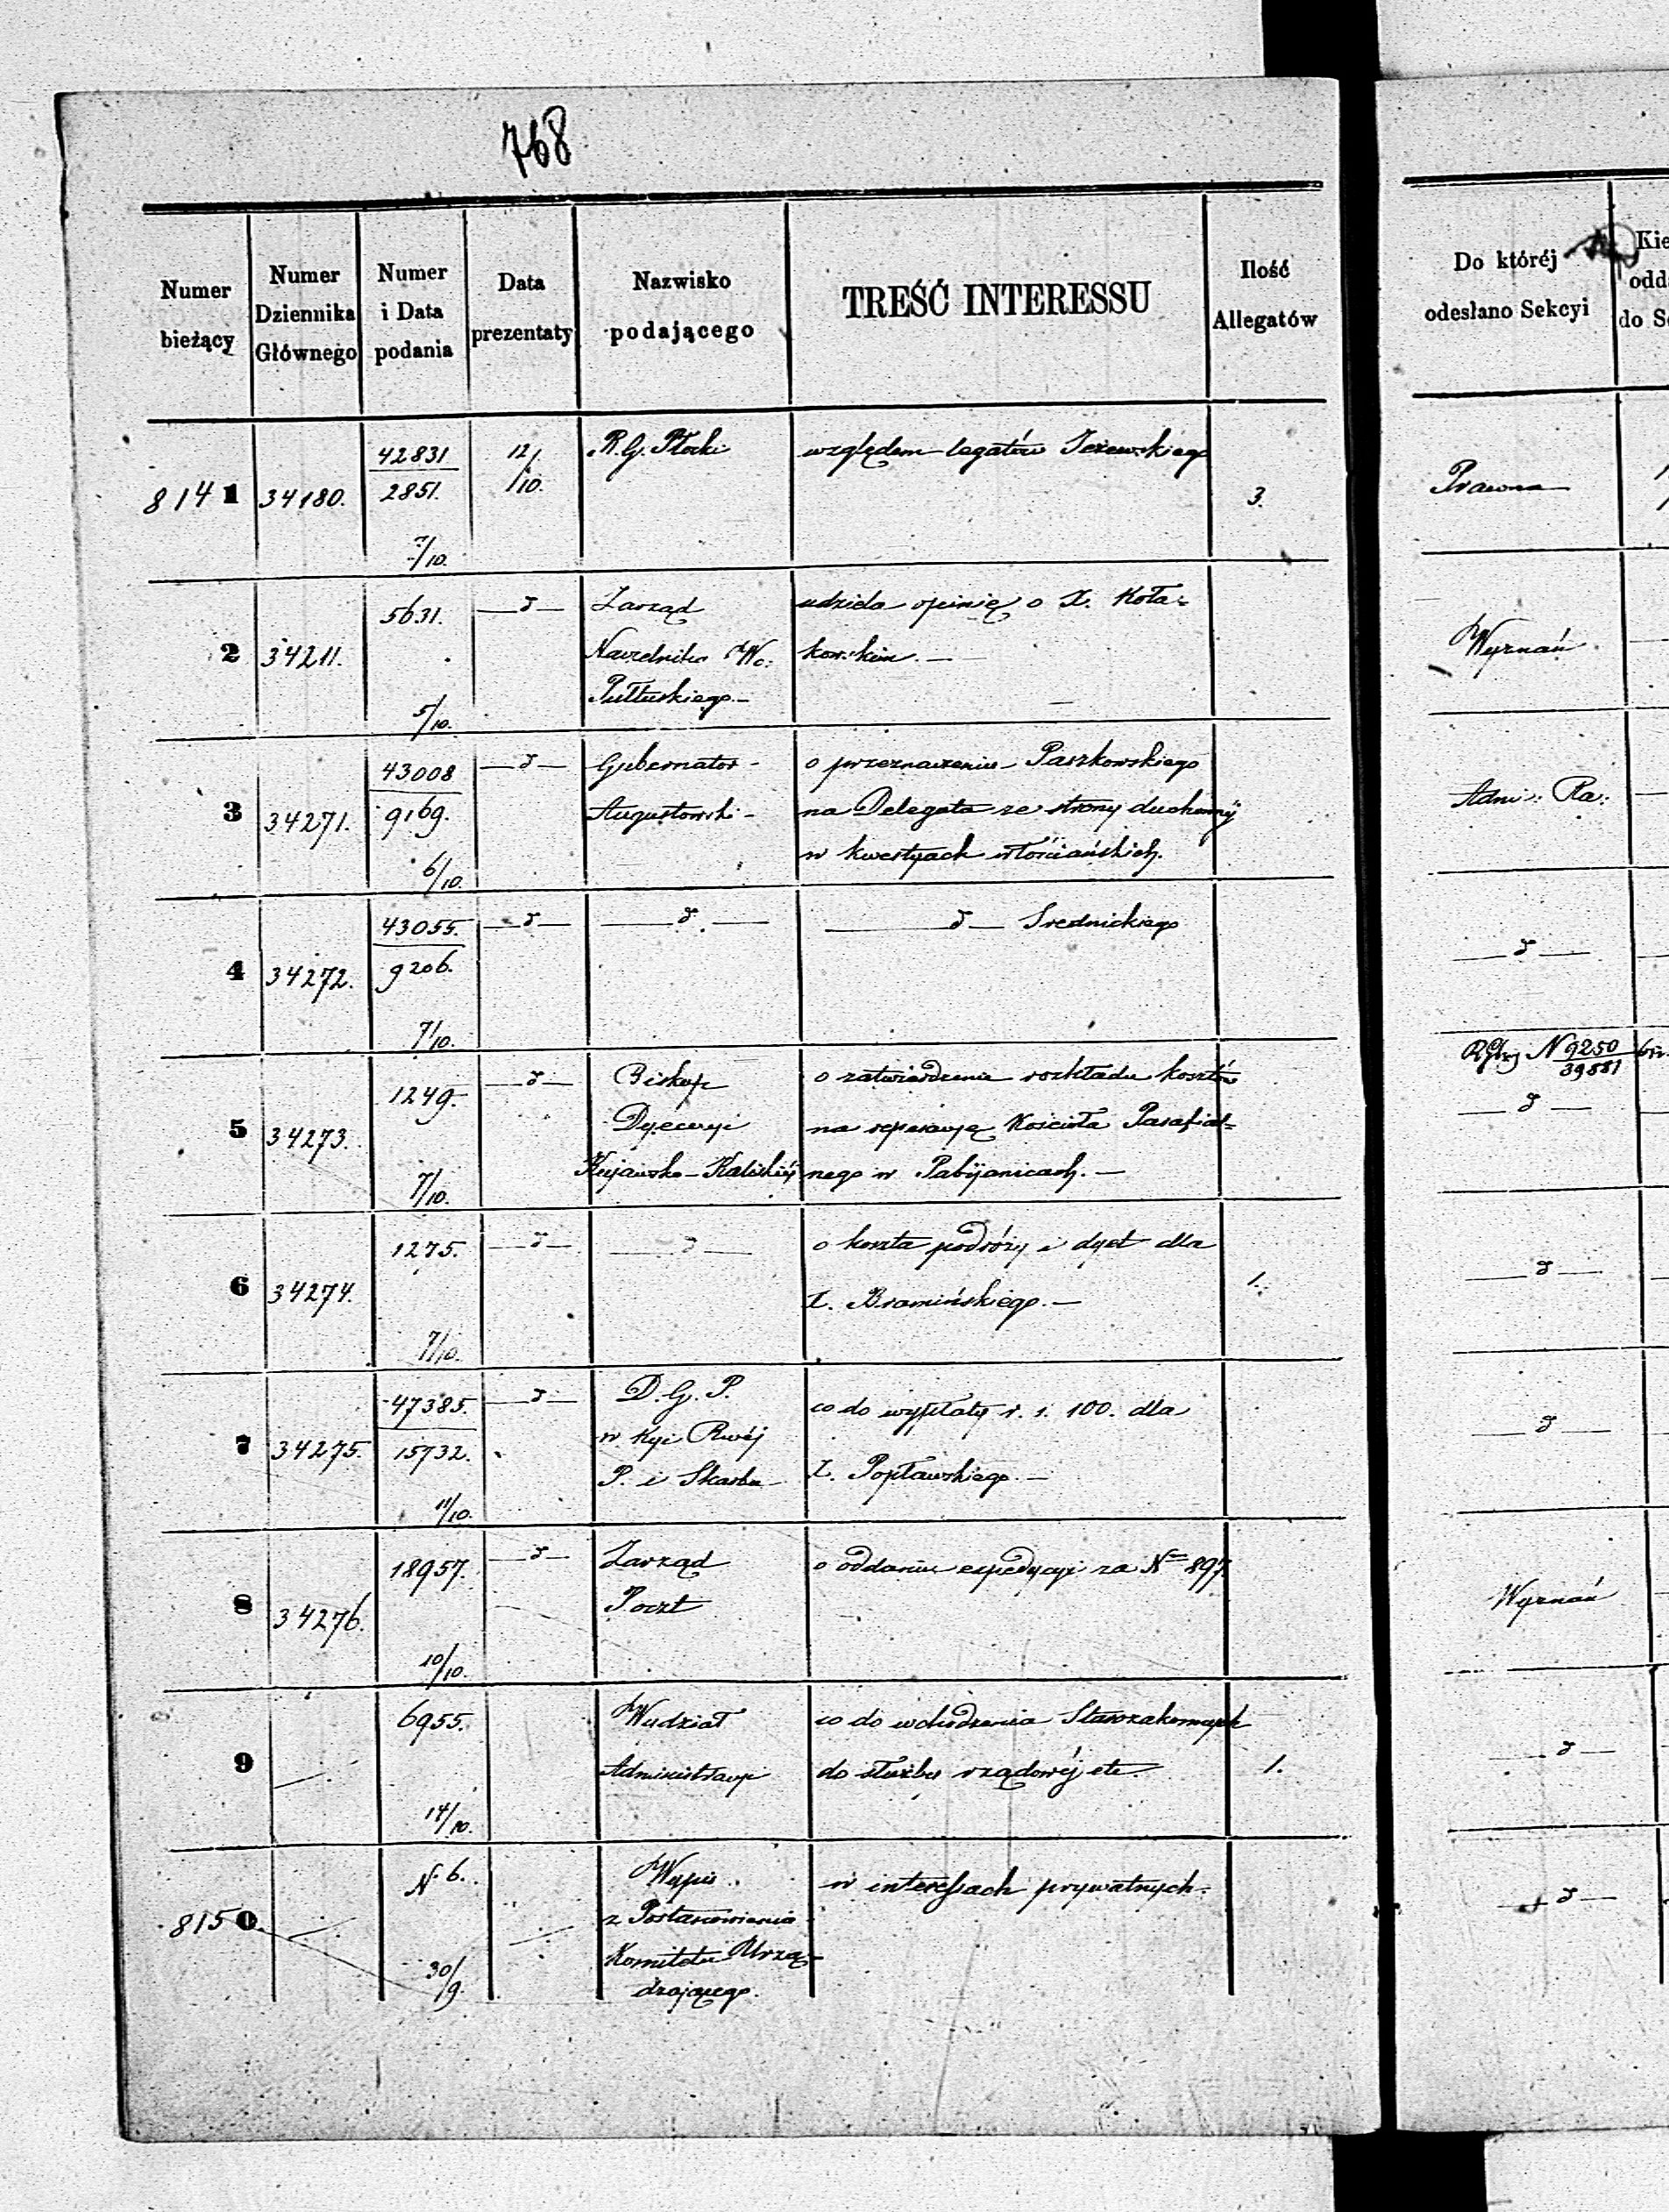 768
Numer bieżący
Numer Dziennika Głównego
Numer i Data podania
Data prezentaty
Nazwisko podającego
TREŚĆ INTERESSU
Ilość Allegatów
Do któréj odesłano Sekcyi
Kie
odd
do S
8141 34180. 42831 12/10. R. G. Płocki względem legatów Jeżewskiego 3. Prawna
2851.
7/10.
2 34211. 5631. —d— Zarząd udziela opinię o X. Koła- Wyznań
Naczelnika Wo: kowskim. —
5/10. Pułtuskiego. —
3 34271. 43008 —d— Gubernator o przeznaczeniu Paszkowskiego Adm: Ra:
9169. Augustowski na Delegata ze strony duchownéj
6/10. w kwestyach włościańskich.
4 34272. 43055. —d— —d— —d— Srednickiego —d—
9206.
7/10.
N 9250
39881
5 34273. 1249. —d— Biskup o zatwierdzenie rozkładu kosztów —d—
Dyecezyi na reperacyą Kościoła Parafial-
7/10. Kujawsko-Kaliskiéj nego w Pabijanicach. —
6 34274. 1275. —d— —d— o koszta podróży i dyet dla 1. —d—
X. Bramińskiego. —
7/10.
7 34275. 47385. —d— D. G. P. co do wypłaty r. s. 100. dla —d—
15732. w Kyi Rwéj
P. i Skarbu X. Popławskiego. —
11/10.
8 34276. 18957. —d— Zarząd o oddaniu expedycyi za № 897. Wyznań
Poczt
10/10.
9 6955. Wydział co do wchodzenia Starozakonnych 1. —d—
Administracyi do służby rządowéj etc.
14/10.
8150 N 6. Wypis w interessach prywatnych. —d—
z Postanowienia
30/9. Komitetu Urzą-
dzającego.